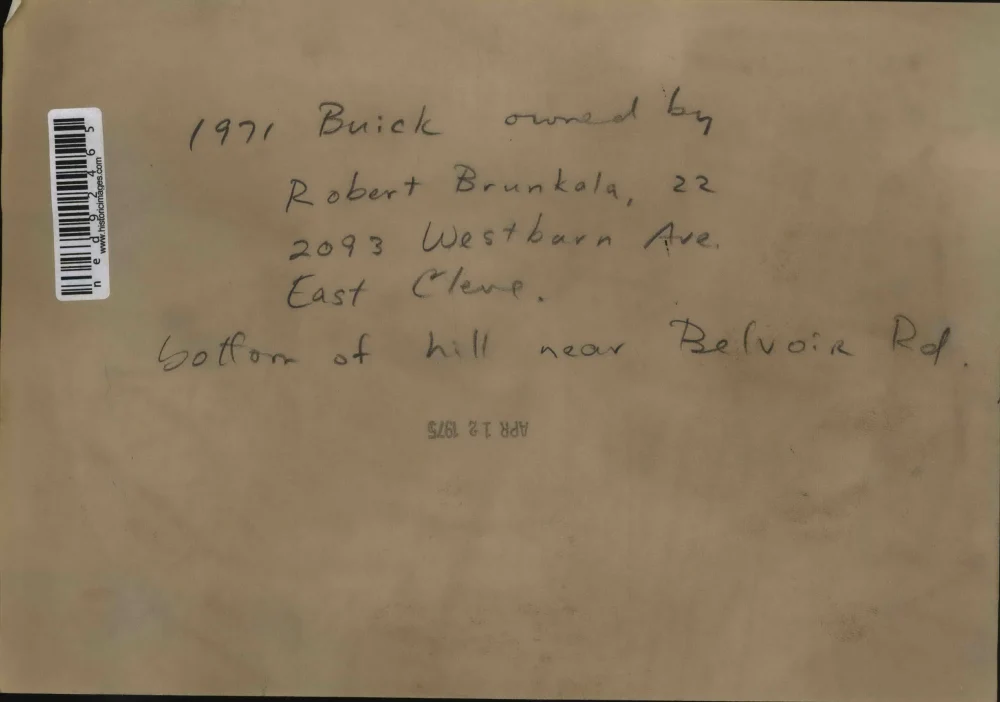 1971 Buick owned by
Robert Brunkala, 22
2093 Westburn Ave.
East Cleve.
bottom of hill near Belvoir Rd.
APR 12 1975
ned92465
www.historicimages.com